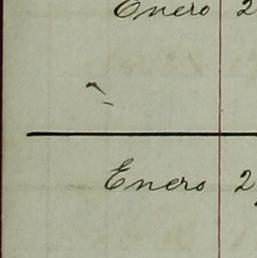 Enero 2
Enero 2